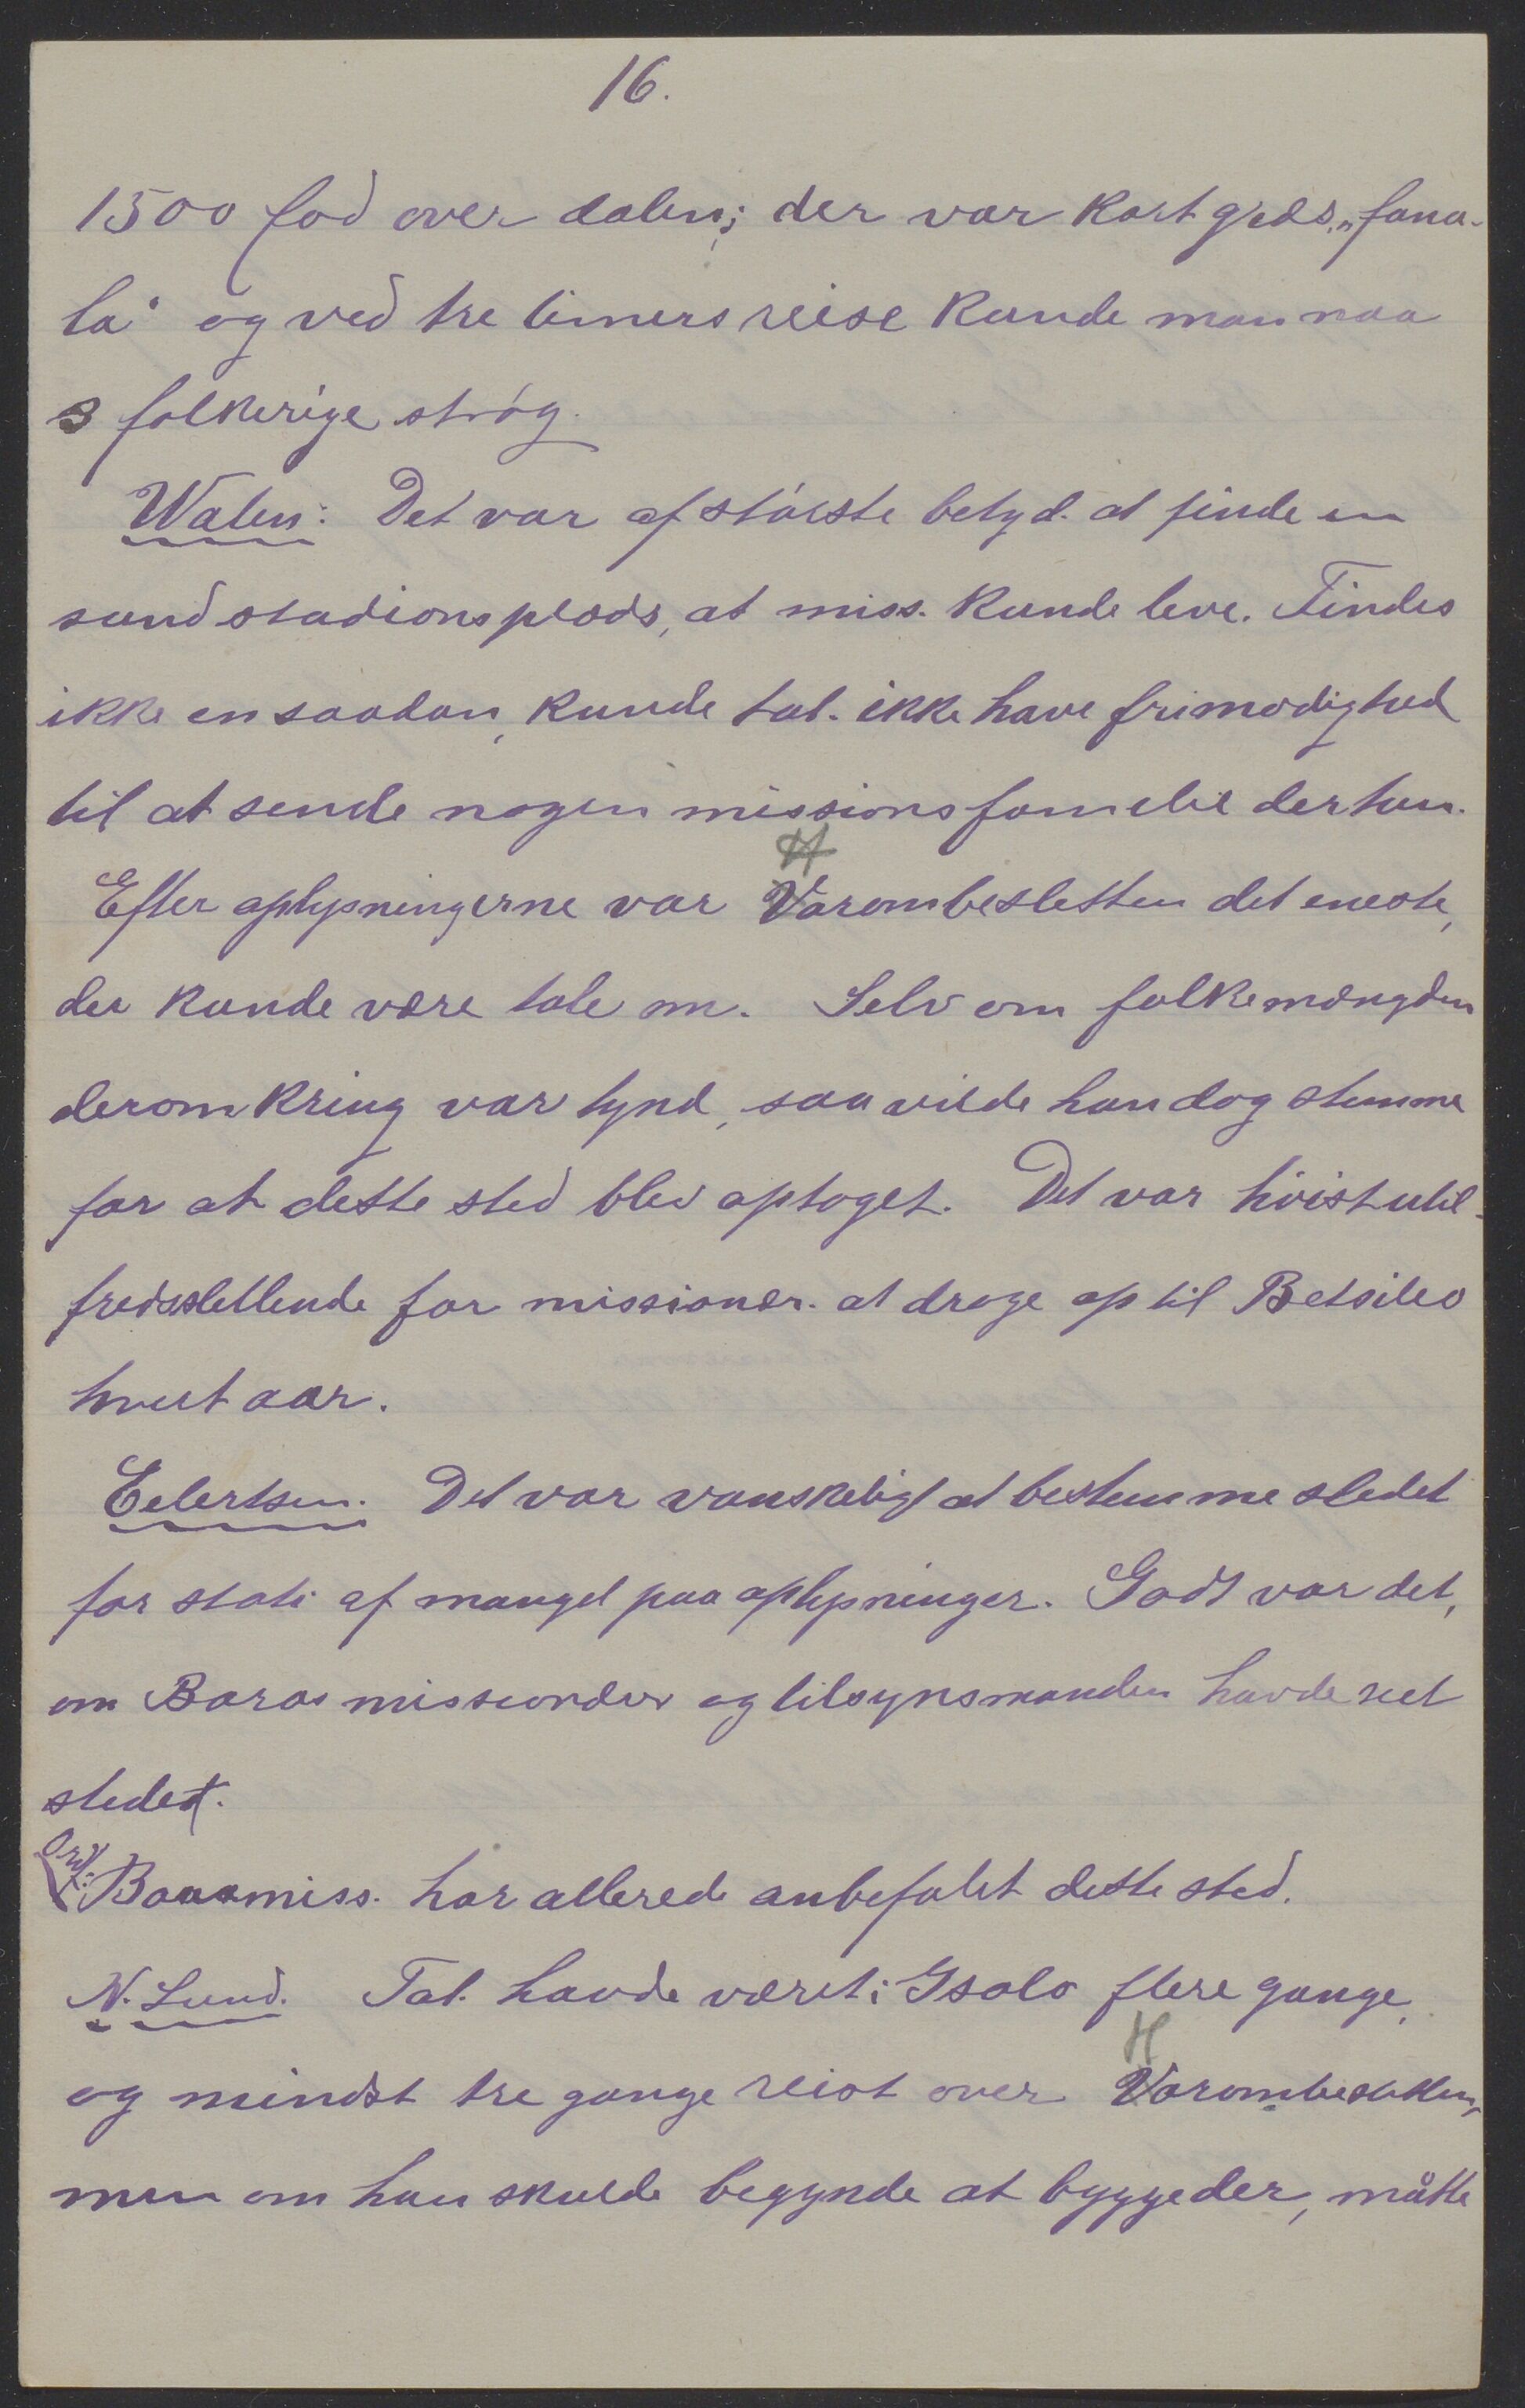 16.
1500 fod over dalen; der var kort græs, „fana-
la" og ved tre timers reise kunde man naa
3 folkerige strøg.
Walen: Det var af største betyd. at finde en
sund stadionsplads, at miss. kunde leve. Findes
ikke en saadan, kunde tal. ikke have frimodighed
til at sende nogen missionsfamilie derhen.
H
Efter oplysningerne var Varombesletten det eneste,
der kunde være tale om. Selv om folkemængden
deromkring var tynd, saa vilde han dog stemme
for at dette sted blev optaget. Det var høist util-
fredsstillende for missionær. at drage op til Betsileo
hvert aar.
Eilertsen. Det var vanskeligt at bestemme stedet
for stati af mangel paa oplysninger. Godt var det,
om Baras missionær og tilsynsmanden havde seet
stedet.
Ord: Baramiss. har allerede anbefalet dette sted.
N. Lund. Tal. havde været i Isalo flere gange,
H
og mindst tre gange reist over Varombesletten,
men om han skulde begynde at bygge der, måtte